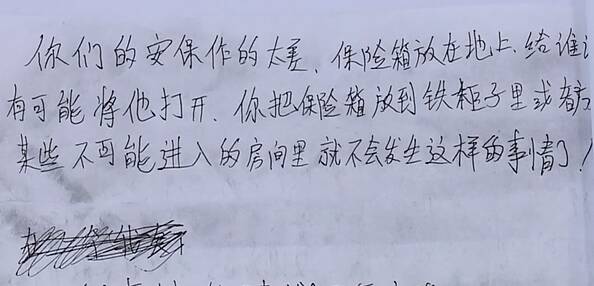 你们的安保作的太差、保险箱放在地上、给谁
有可能将他打开、你把保险箱放到铁柜子里或者
某些不可能进入的房间里就不会发生这样的事情了!